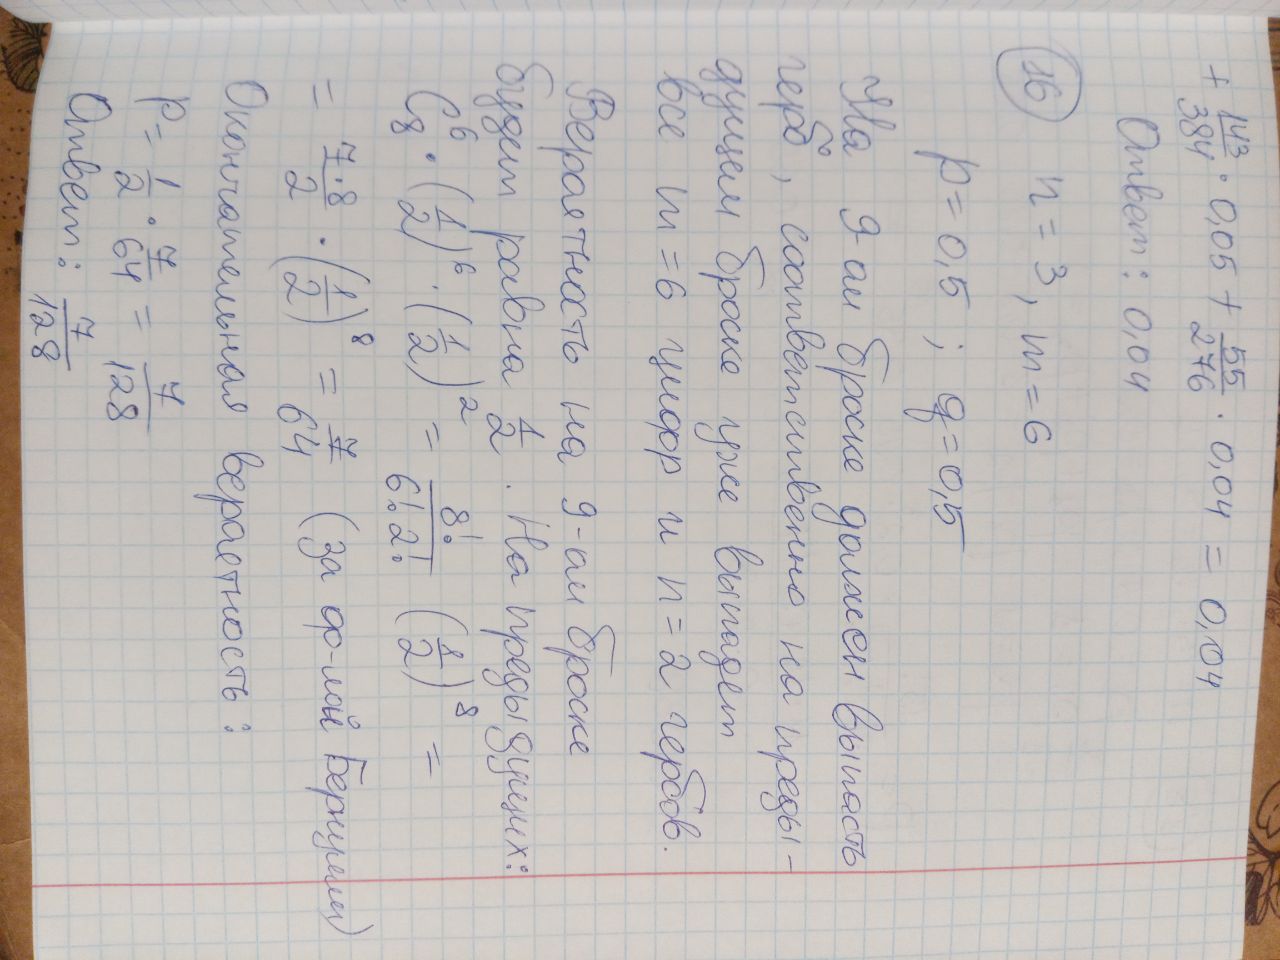 + 143/384 · 0,05 + 55/276 · 0,04 = 0,04
Ответ: 0,04
16 n = 3, m = 6
p = 0,5 ; q = 0,5
На 9-ом броске должен выпасть
герб, соответственно на преды-
дущем броске уже выпадет
все m = 6 цифр и n = 2 гербов.
Вероятность на 9-ом броске
будет равна 1/2. На предыдущих:
C₈⁶ · (1/2)⁶ · (1/2)² = 8!/(6! 2!) (1/2)⁸ =
= 7·8/2 · (1/2)⁸ = 7/64 (за ф-лой Бернулли)
Окончательная вероятность:
P = 1/2 · 7/64 = 7/128
Ответ: 7/128